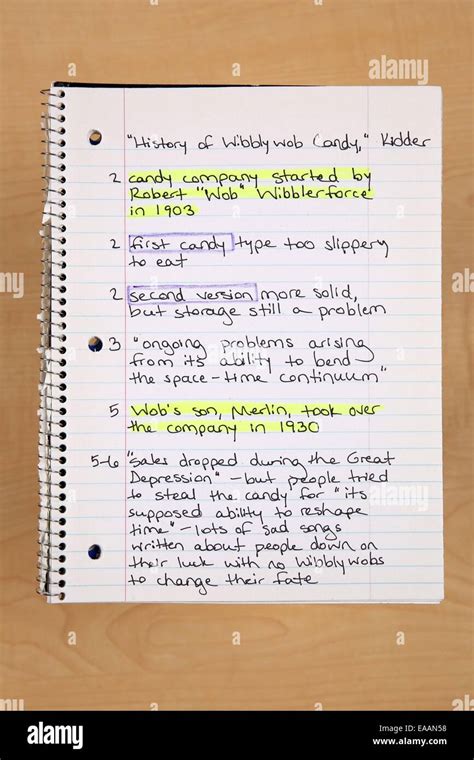 alamy
"History of Wibblywob Candy," Kidder
2 candy company started by
Robert "Wob" Wibblerforce
in 1903
2 first candy type too slippery
to eat
2 second version more solid,
but storage still a problem
3 "ongoing problems arising
from its ability to bend
the space-time continuum"
5 Wob's son, Merlin, took over
the company in 1930
5-6 "Sales dropped during the Great
Depression" - but people tried
to steal the candy for "its
supposed ability to reshape
time" - lots of sad songs
written about people down on
their luck with no Wibblywobs
to change their fate
alamy
Image ID: EAAN58
www.alamy.com